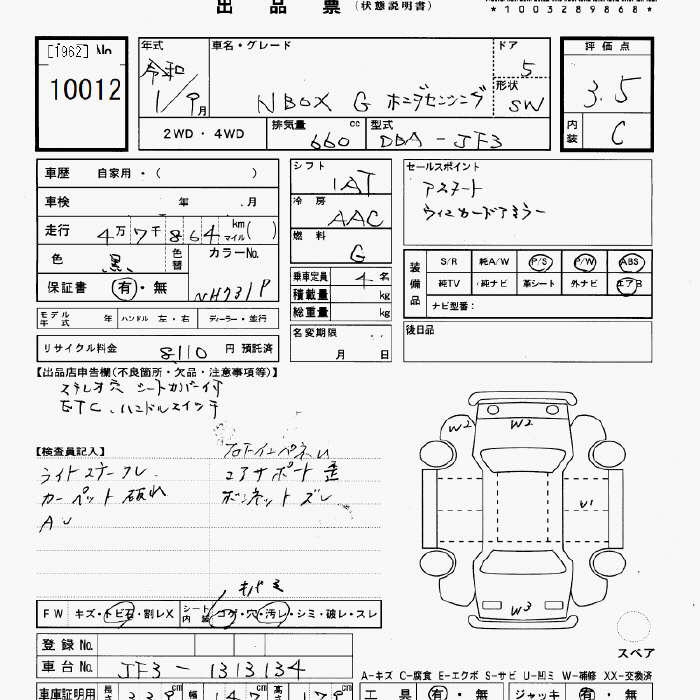 出 品 票 (状態説明書)
*1003289868*
[1962] No
10012
年式 令和 1/9月
車名・グレード
NBOX G ホンダセンシング
ドア 5
形状 SW
評価点 3.5
内装 C
2WD・4WD
排気量 660 cc
型式 DBA-JF3
車歴 自家用・( )
車検 年 .月
走行 4万7千864 km マイル( )
色 黒 色替 カラーNo. NH731P
保証書 有・無
シフト 1AT
冷房 AAC
燃料 G
セールスポイント
アスマート
乗車定員 4名
積載量 kg
総重量 kg
装備品
S/R 純A/W P/S P/W ABS
純TV 純ナビ 革シート 外ナビ エアB
ナビ型番:
モデル年式 年 ハンドル 左・右 ディーラー・並行
名変期限 月 日
後日品
リサイクル料金 8,110 円 預託済
【出品店申告欄(不良箇所・欠品・注意事項等)】
ステレオ穴 シートカバー付
ETC、ハンドルスイッチ
【検査員記入】
カーペット破れ
AU
コアサポート歪
ボンネットズレ
W2 W2
U1
W3
FW キズ・トビ石・割レX シート内装 コゲ・穴・汚レ・シミ・破レ・スレ
スペア
登録No.
車台No. JF3-1313134
A-キズ C-腐食 E-エクボ S-サビ U-凹ミ W-補修 XX-交換済
車庫証明用 長さ 339cm 幅 147cm 高さ 179cm
工具 有・無 ジャッキ 有・無